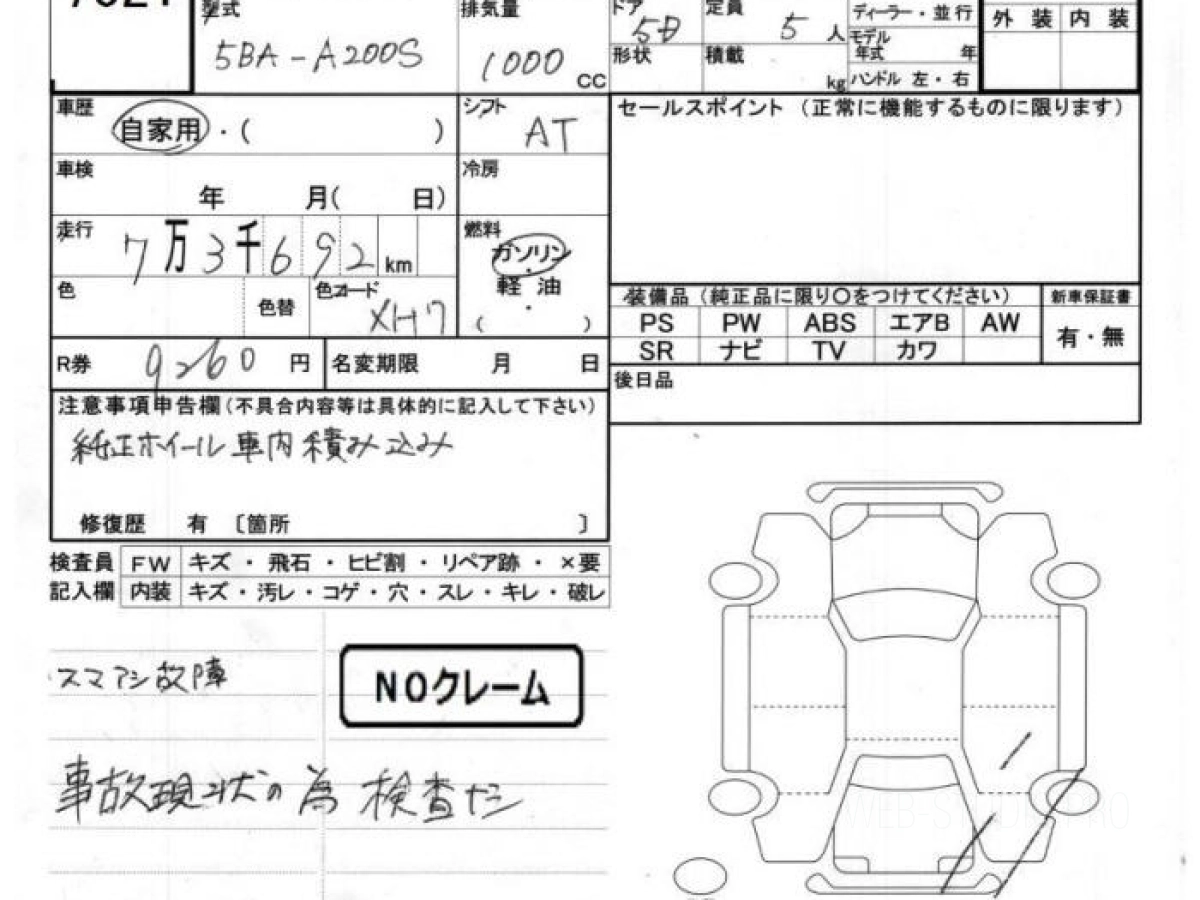 型式
5BA-A200S
排気量
1000 CC
ドア
5D
定員
5 人
ディーラー・並行
モデル年式 年
外装 内装
形状
積載 kg
ハンドル 左・右
車歴
自家用・( )
シフト
AT
セールスポイント(正常に機能するものに限ります)
車検
年 月( 日)
冷房
走行
7万3千692km
燃料
ガソリン
・
軽油
・
( )
色
色替
色コード
XH7
装備品(純正品に限り○をつけてください)
新車保証書
PS PW ABS エアB AW
有・無
SR ナビ TV カワ
R券 9260 円
名変期限 月 日
後日品
注意事項申告欄(不具合内容等は具体的に記入して下さい)
純正ホイール車内積み込み
修復歴 有 〔箇所 〕
検査員 FW キズ・飛石・ヒビ割・リペア跡・×要
記入欄 内装 キズ・汚レ・コゲ・穴・スレ・キレ・破レ
スマアシ故障
NOクレーム
事故現状の為 検査ナシ